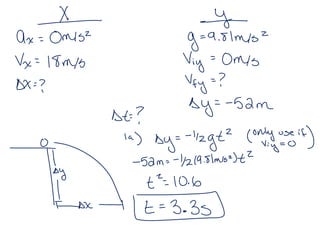 X
ax = 0m/s²
Vx = 18m/s
Δx = ?
y
g = 9.81m/s²
Viy = 0m/s
Vfy = ?
Δy = -52m
Δt = ?
1a) Δy = -1/2gt² (only use if Viy = 0)
-52m = -1/2(9.81m/s²)t²
t² = 10.6
t = 3.3s
Δy
Δx